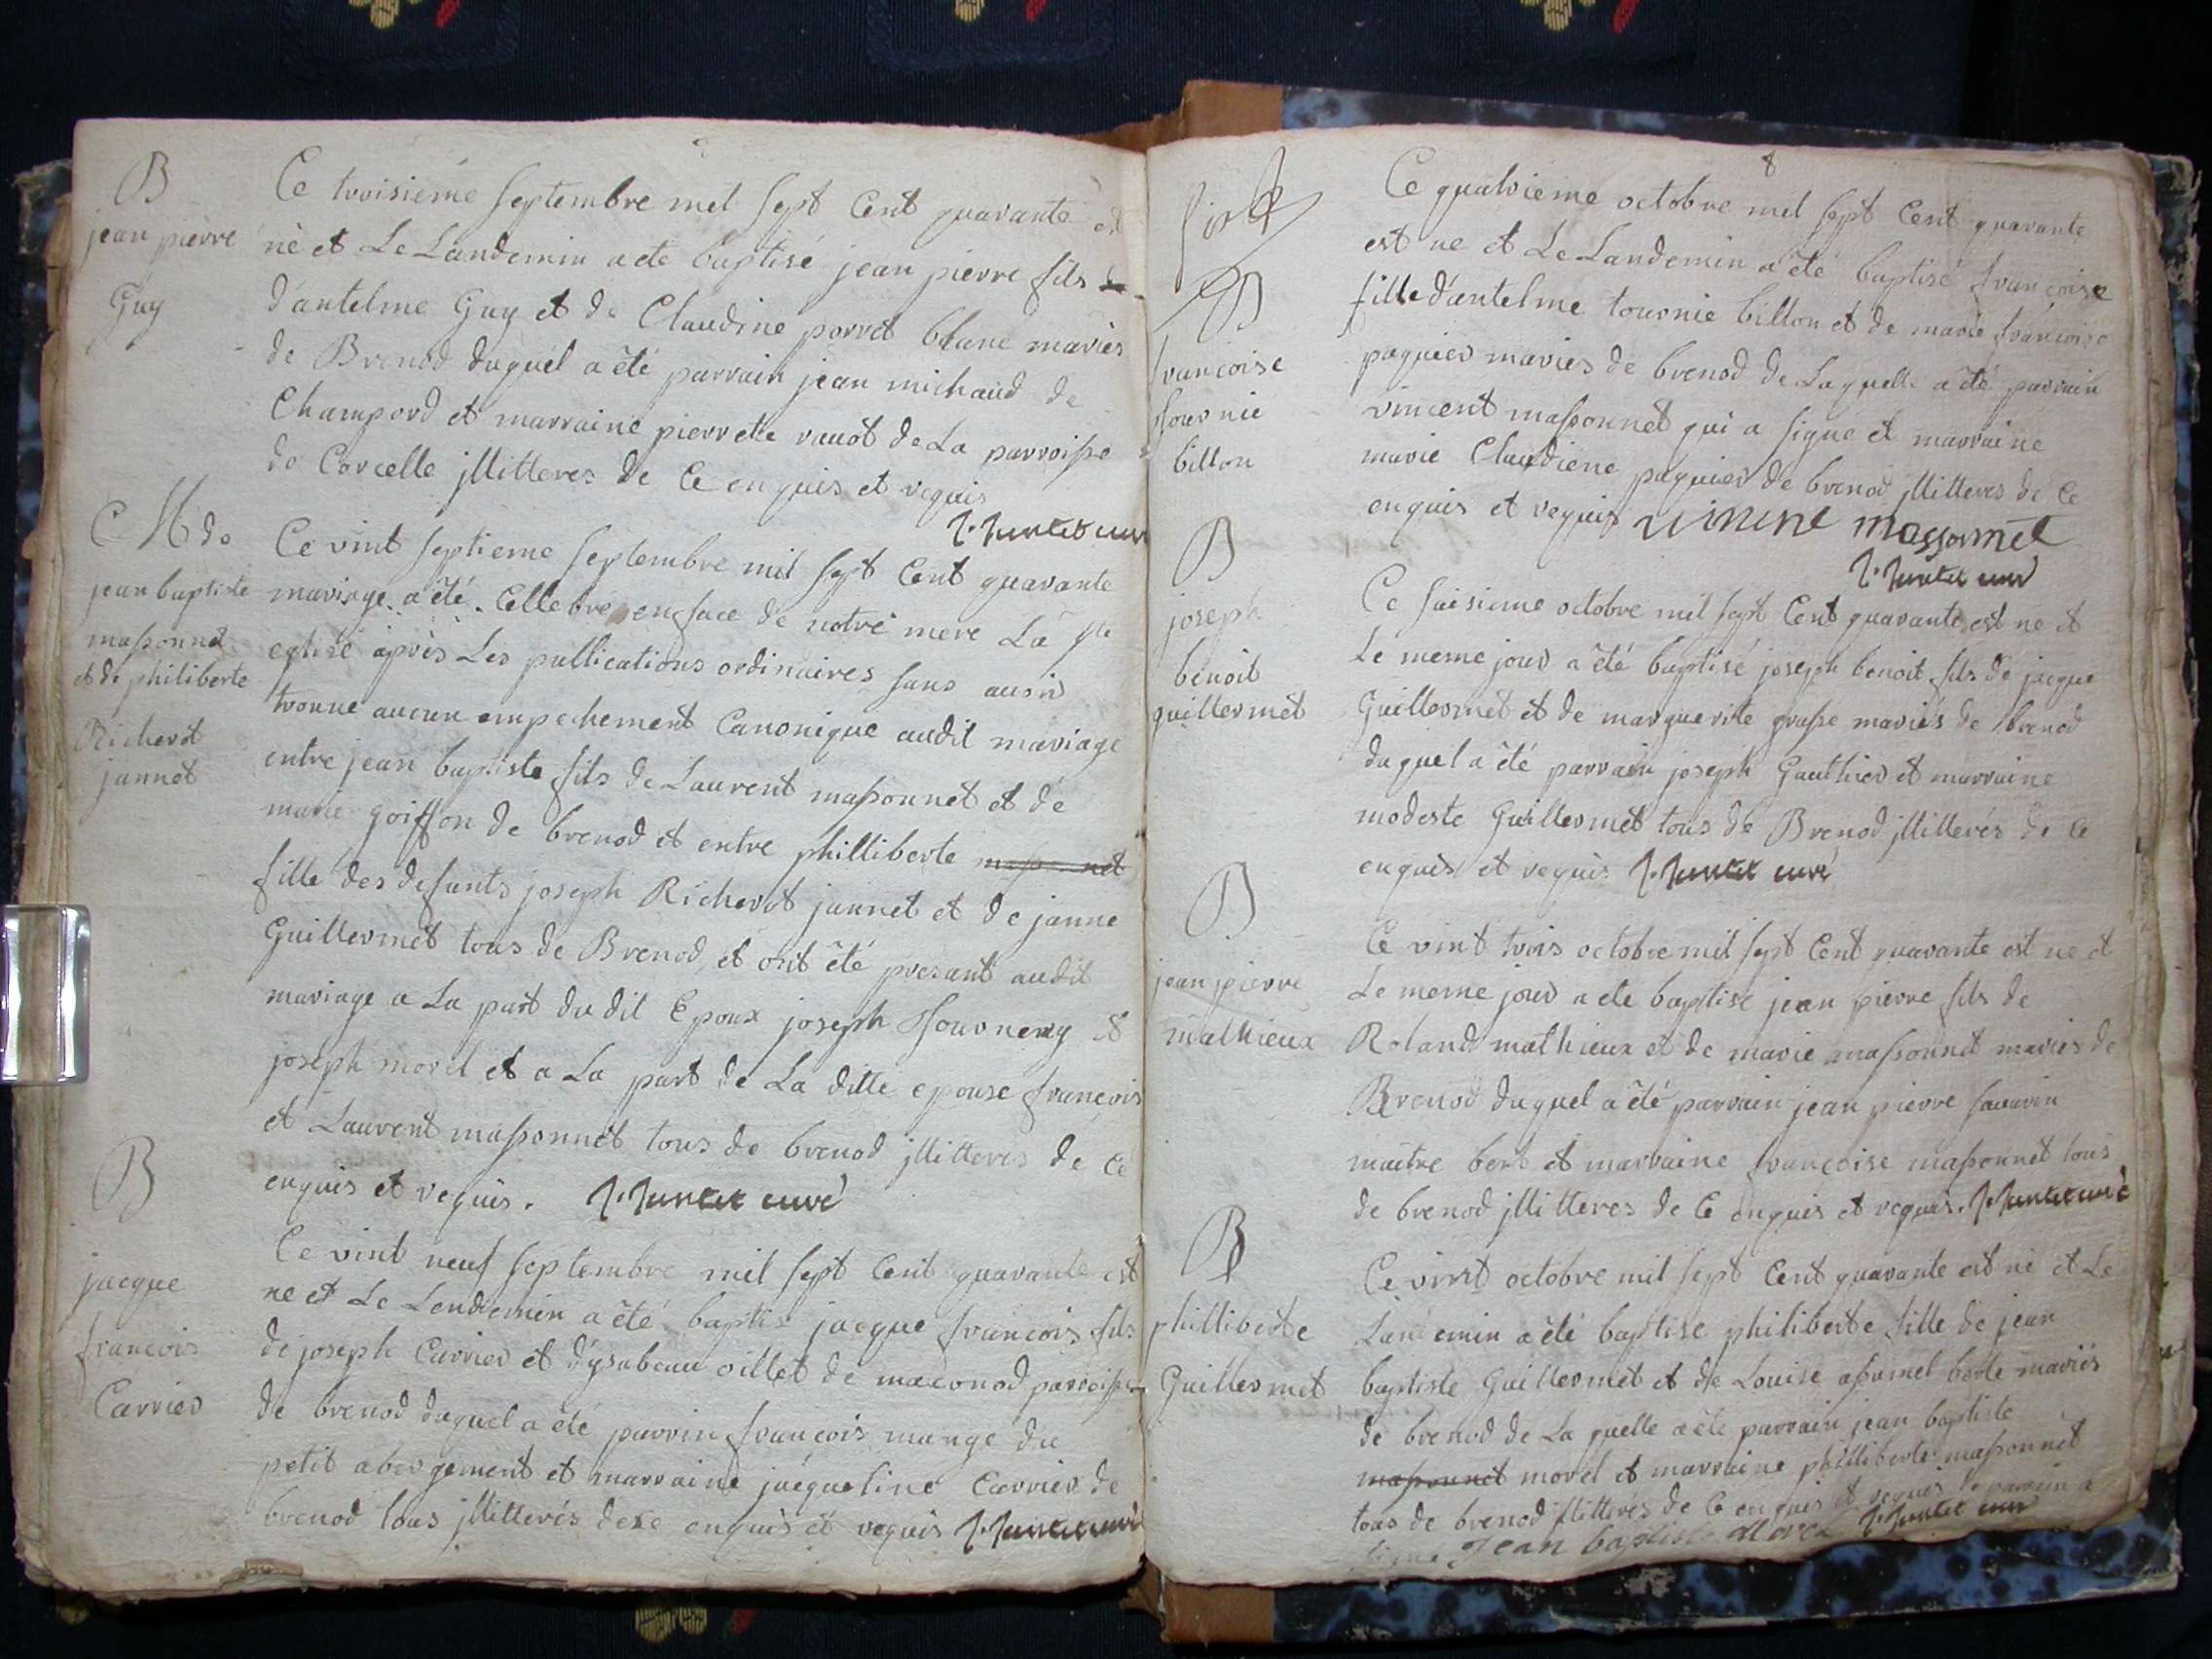 B
jean pierre
Guy
Ce troisiéme septembre mil sept Cent quarante est
né et Le Landemin a ete baptisé jean pierre fils
d'antelme Guy et de Claudine porret blanc mariés
de Brenod duquel a êté parrain jean michaud de
Champord et marraine pierrette ravot de La parroisse
de Corcelle jllitteres de Ce enquis et requis
curé
C M de
jean baptiste
massonnet
et de philiberte
Richerot
jannet
Ce vint septieme septembre mil sept Cent quarante
mariage a êté Cellebré en face de notre mere La ste
eglise après Les publications ordinaires sans auoir
trouué aucun empechement Canonique audit mariage
entre jean baptiste fils de Laurent massonnet et de
marie goiffon de brenod et entre philliberte massonnet
fille des defunts joseph Richerot jannet et de janne
Guillermet tous de Brenod et ont êté presant audit
mariage a La part du dit Epoux joseph et
joseph morel et a La part de La ditte epouse francois
et Laurent massonnet tous de brenod jllitteres de Ce
enquis et requis. curé
B
jacque
francois
Carrier
Ce vint neuf septembre mil sept Cent quarante est
ne et Le Lendemin a êté baptisé jacque francois fils
de joseph Carrier et d'ysabeau oillet de maconod parroisse
de brenod duquel a êté parrin francois mange du
petit abergement et marraine jacqueline Carrier de
brenod tous jllitterés de ce enquis et requis curé
8
B
francoise
tournie
billon
Ce quatrieme octobre mil sept Cent quarante
est ne et Le Landemin a été baptisé francoise
fille d'antelme tournie billon et de marie francoise
paquier mariés de brenod de Laquelle a êté parrain
vincent massonnet qui a signe et marraine
marie Claudiene paquier de brenod jllitteres de Ce
enquis et requis vincent massonnet
curé
B
joseph
benoit
guillermet
Ce saisieme octobre mil sept Cent quarante est ne et
Le meme jour a êté baptisé joseph benoit fils de jacque
Guillermet et de marguerite grasse mariés de brenod
duquel a êté parrain joseph Gauthier et marraine
modeste Guillermet tous de Brenod jllitterés de Ce
enquis et requis curé
B
jean pierre
mathieux
Ce vint trois octobre mil sept Cent quarante est ne et
Le meme jour a ete baptisé jean pierre fils de
Roland mathieux et de marie massonnet mariés de
Brenod duquel a êté parrain jean pierre sauarin
maitre bert et marraine francoise massonnet tous
de brenod jllitteres de Ce enquis et requis. curé
B
philliberte
Guillermet
Ce vint octobre mil sept Cent quarante est né et Le
Landemin a êté baptisé philiberte fille de jean
baptiste Guillermet et de Louise berte mariés
de brenod de La quelle a êté parrain jean baptiste
massonnet morel et marraine philliberte massonnet
tous de brenod jllitterés de Ce enquis et requis le parrain a
signe Jean baptiste Morel curé